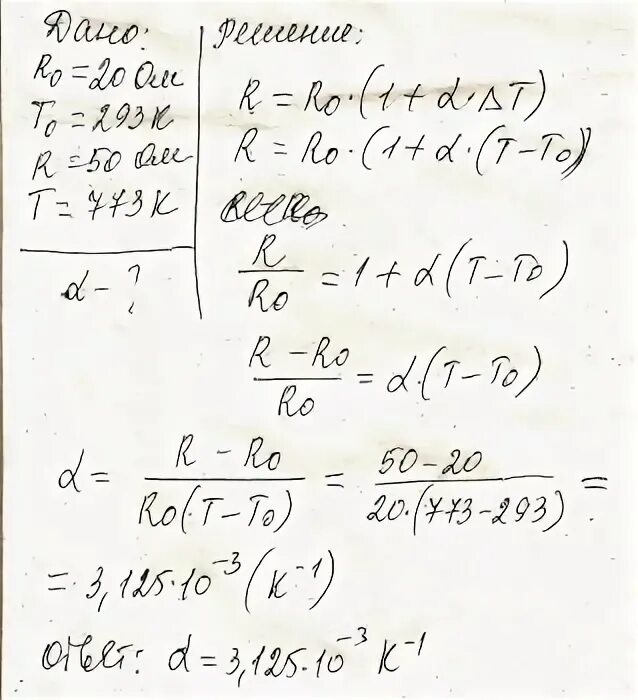 Дано:
R₀ = 20 Ом
T₀ = 293 К
R = 50 Ом
T = 773 К
α - ?
Решение:
R = R₀·(1 + α·ΔT)
R = R₀·(1 + α·(T - T₀))
R/R₀ = 1 + α(T - T₀)
(R - R₀)/R₀ = α·(T - T₀)
α = (R - R₀)/(R₀(T - T₀)) = (50 - 20)/(20·(773 - 293)) =
= 3,125·10⁻³ (К⁻¹)
Ответ: α = 3,125·10⁻³ К⁻¹